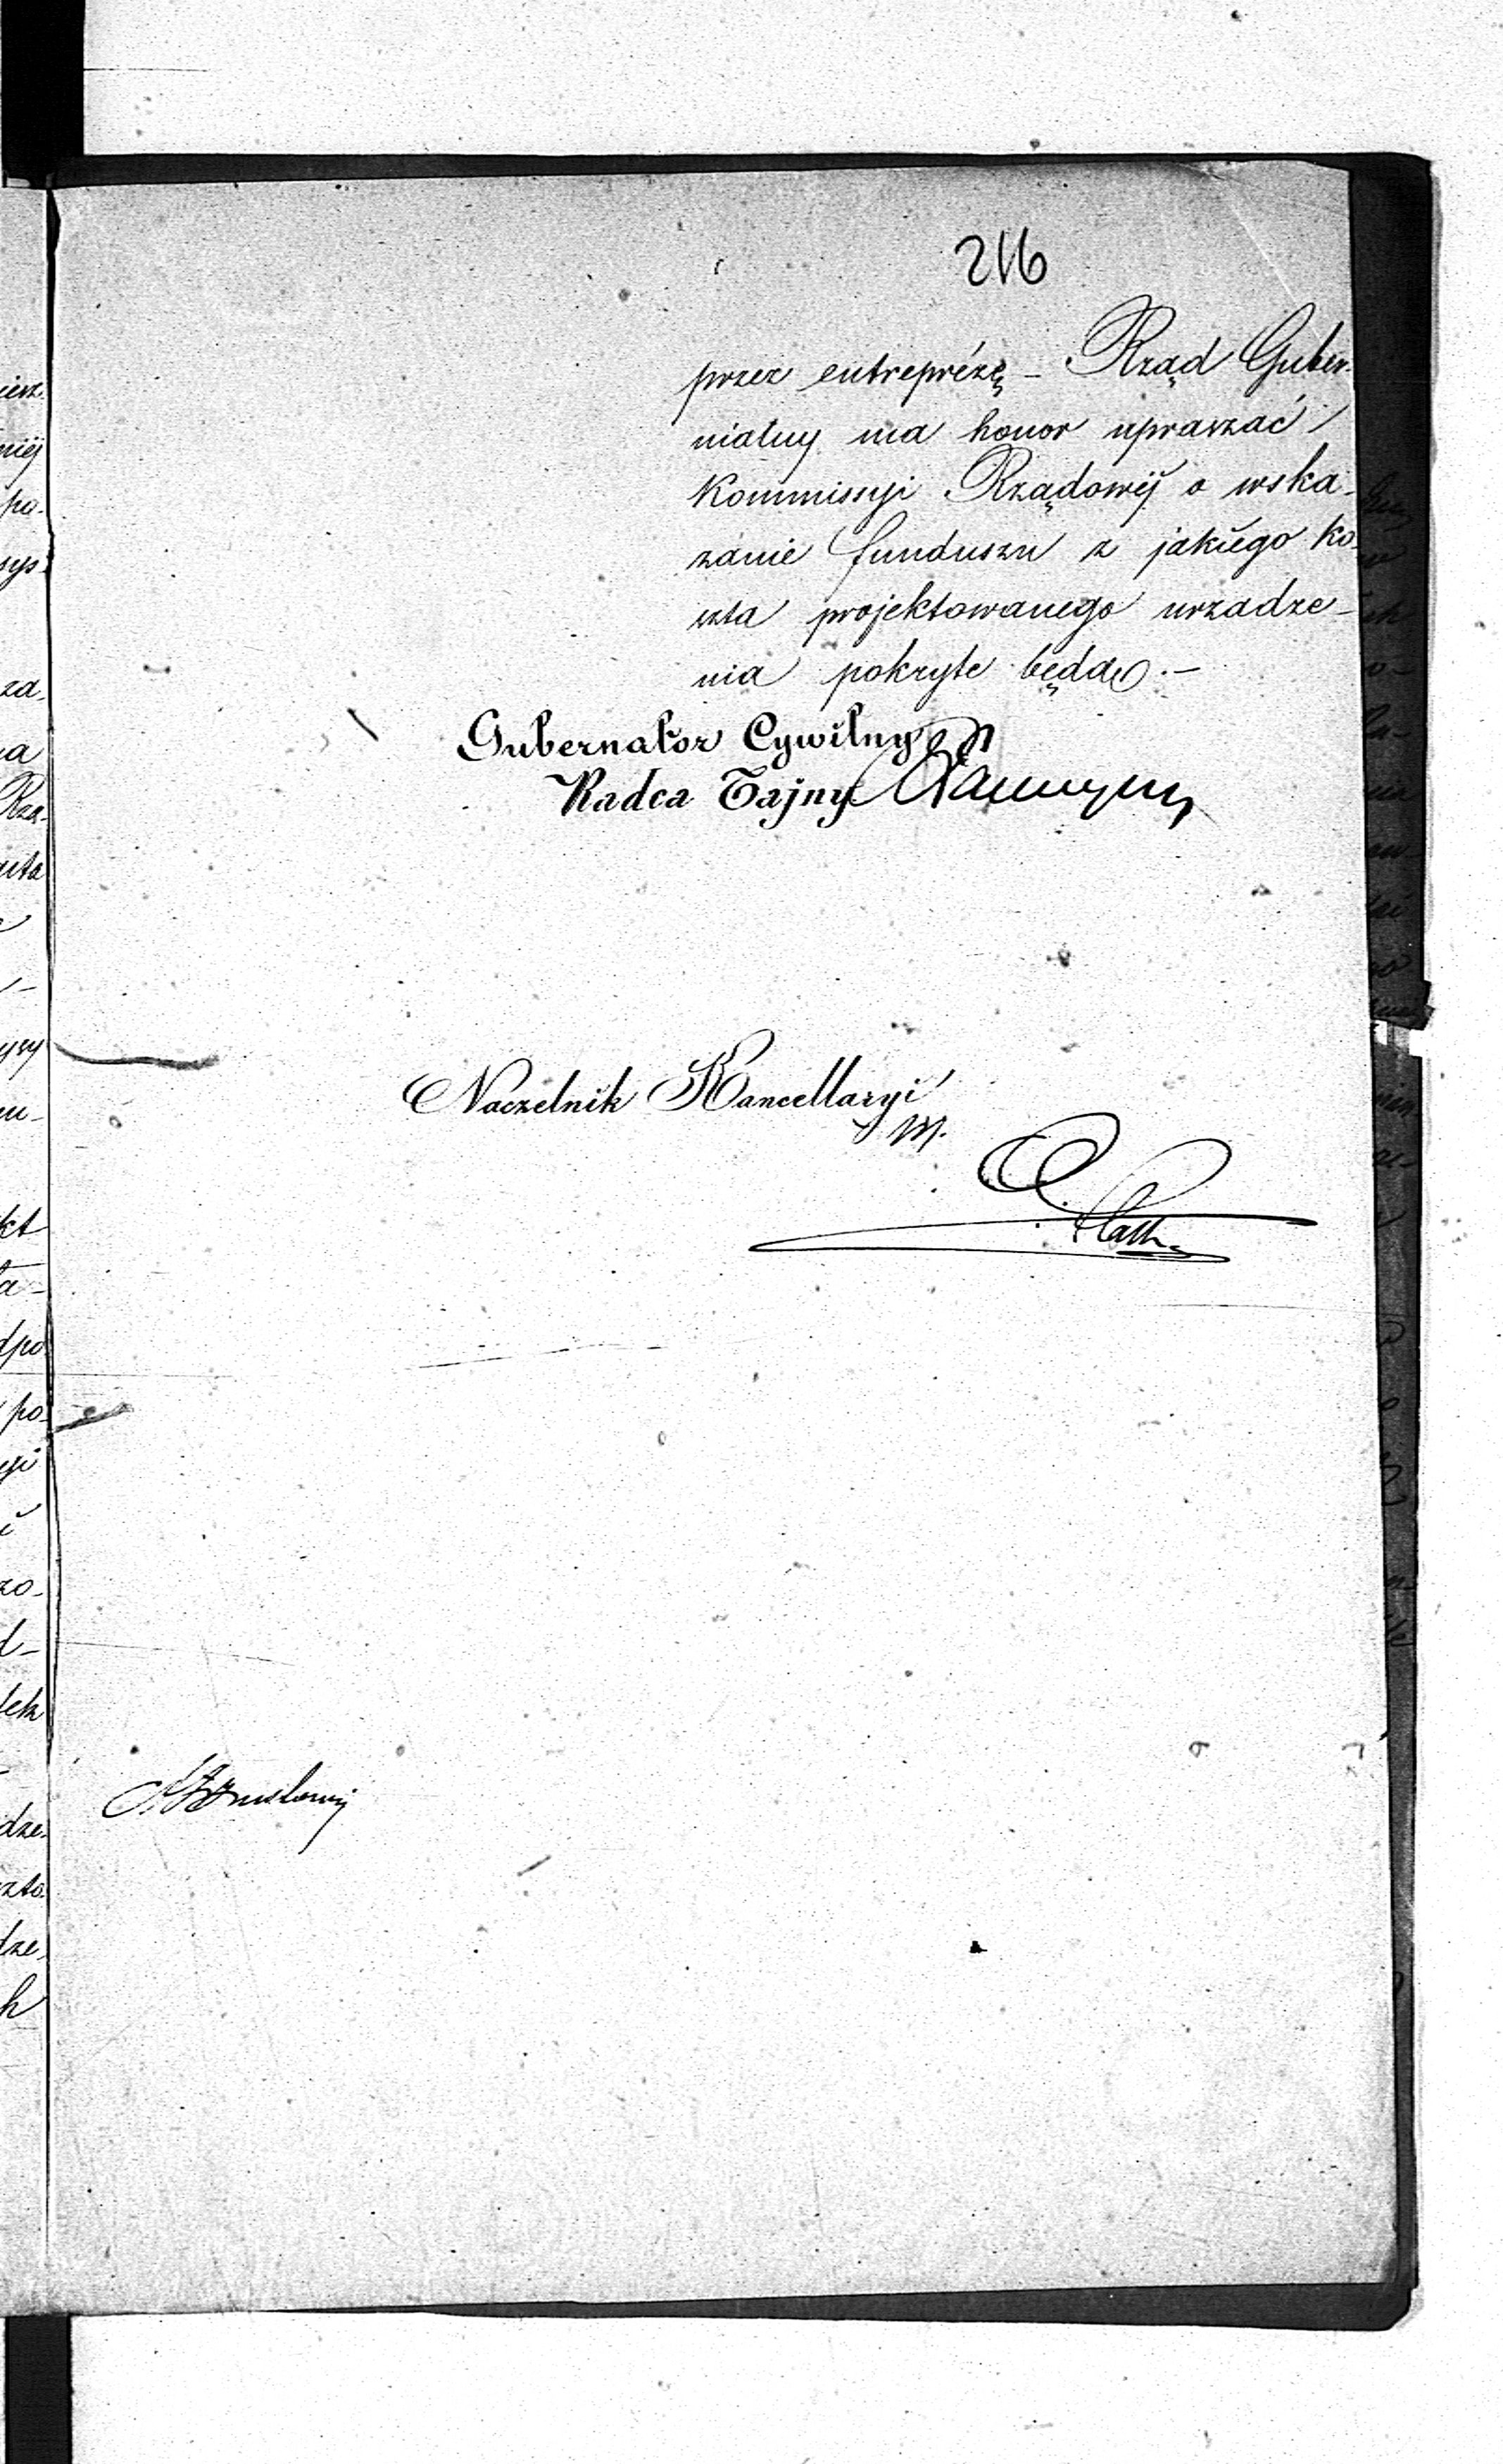 216
przez entreprézę – Rząd Guber-
nialny ma honor upraszać
Kommissyi Rządowéj o wska-
zanie funduszu z jakiego ko-
szta projektowanego urządze-
nia pokryte będą.–
Gubernator Cywilny
Radca Tajny
Naczelnik Kancellaryi